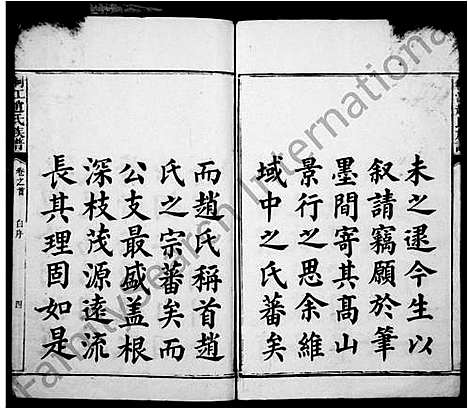 未之逮今生以
叙請竊願於筆
墨間寄其高山
景行之思余維
域中之氏蕃矣
而趙氏稱首趙
氏之宗蕃矣而
公支最盛盖根
深枝茂源遠流
長其理固如是
江趙氏族譜
卷之首
自序
四
FamilySearch International